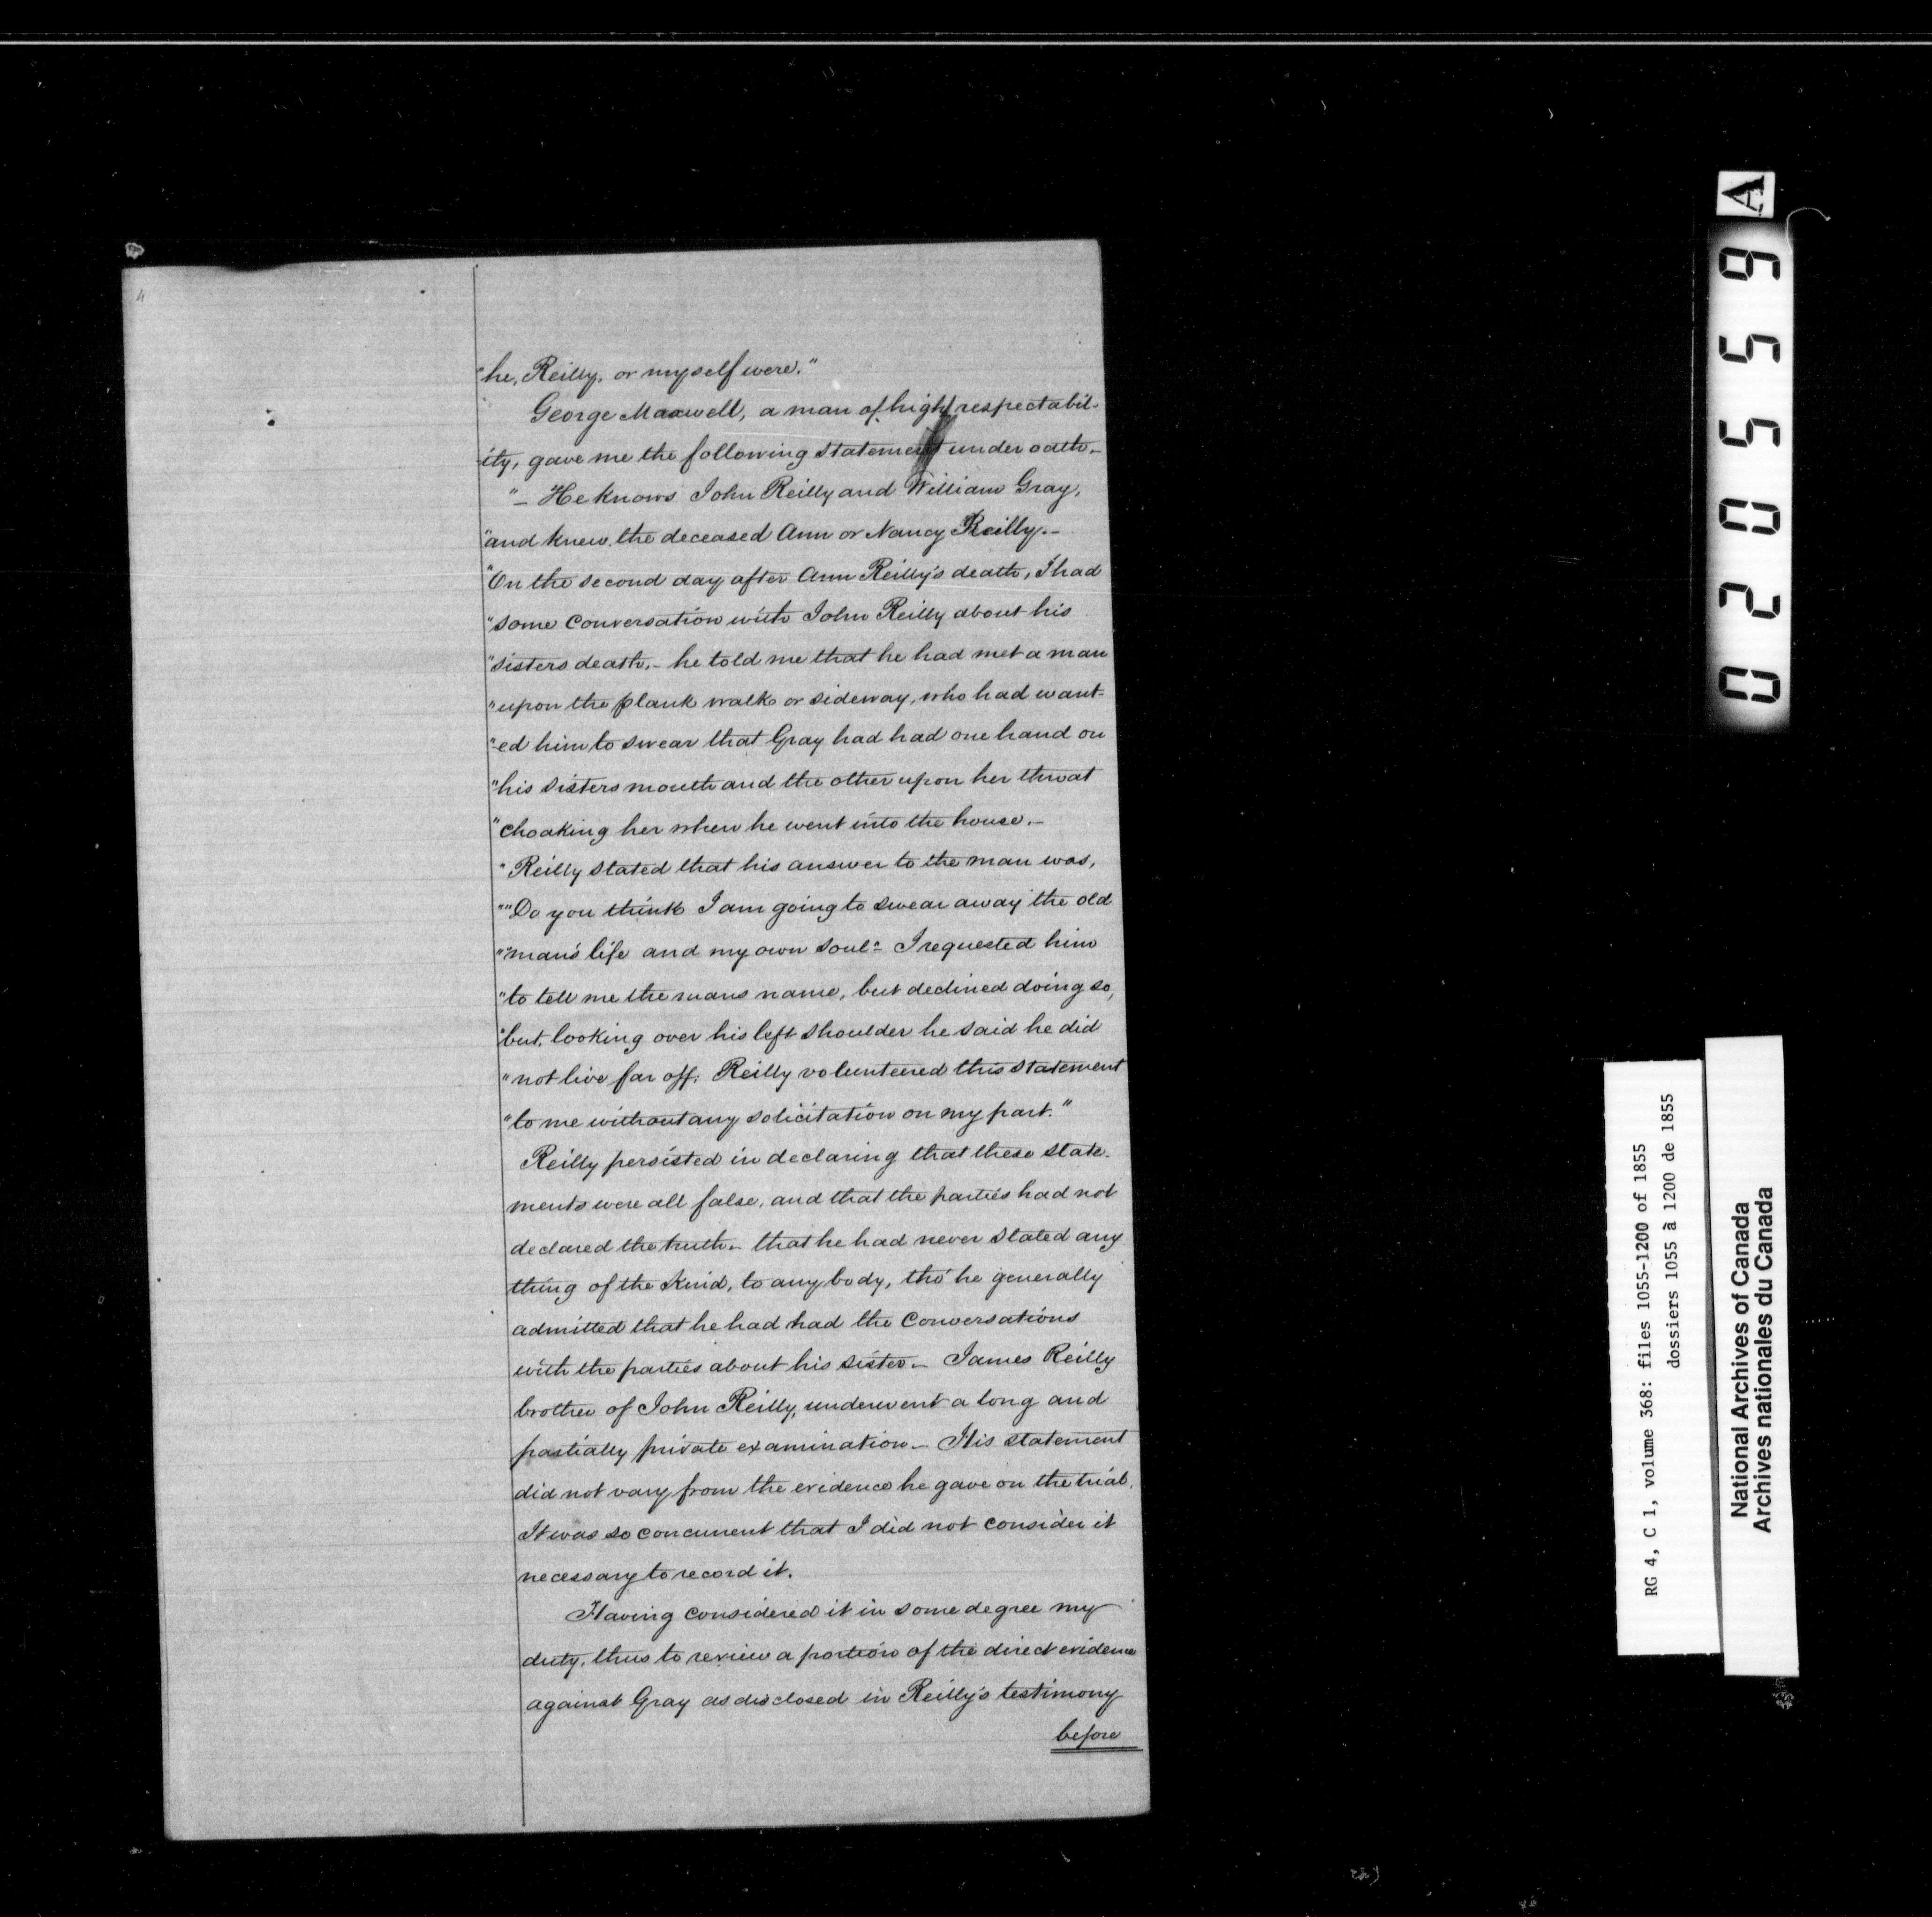 "he, Reilly, or myself were."
George Maxwell, a man of high respectabil-
ity, gave me the following statement under oath.-
"- He knows John Reilly and William Gray,
"and knew the deceased Ann or Nancy Reilly.-
"On the second day after Ann Reilly's death, I had
"some conversation with John Reilly about his
"sisters death.- he told me that he had met a man
"upon the plank walk or sideway, who had want-
"-ed him to swear that Gray had had one hand on
"his sisters mouth and the other upon her throat
"choaking her when he went into the house.-
"Reilly stated that his answer to the man was,
""Do you think I am going to swear away the old
""man's life and my own soul"- I requested him
"to tell me the mans name, but declined doing so,
"but, looking over his left shoulder he said he did
"not live far off. Reilly volunteered this statement
"to me without any solicitation on my part."
Reilly persisted in declaring that these state-
ments were all false, and that the parties had not
declared the truth.- that he had never stated any
thing of the kind, to any body, tho' he generally
admitted that he had had the conversations
with the parties about his sister.- James Reilly
brother of John Reilly, underwent a long and
partially private examination.- His statement
did not vary from the evidence he gave on the trial.
It was so concurrent that I did not consider it
necessary to record it.
Having considered it in some degree my
duty, thus to review a portion of the direct evidence
against Gray as disclosed in Reilly's testimony
before
A
020559
RG 4, C 1, volume 368: files 1055-1200 of 1855
dossiers 1055 à 1200 de 1855
National Archives of Canada
Archives nationales du Canada